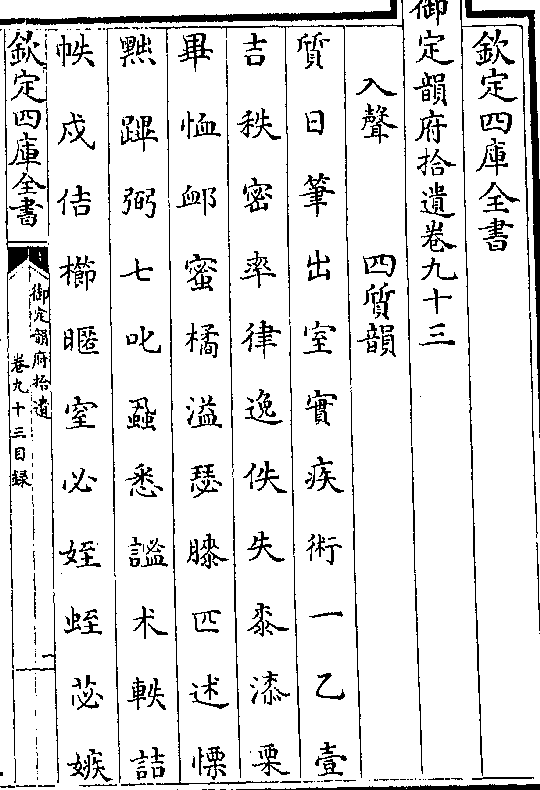 欽定四庫全書
御定韻府拾遺卷九十三
入聲 四質韻
質日筆出室實疾術一乙壹
吉秩密率律逸佚失黍漆栗
畢恤卹蜜橘溢瑟膝匹述慄
黜蹕弼七叱蝨悉謐朮軼詰
帙戍佶櫛暱窒必姪蛭苾嫉
欽定四庫全書
御定韻府拾遺
卷九十三目録
一